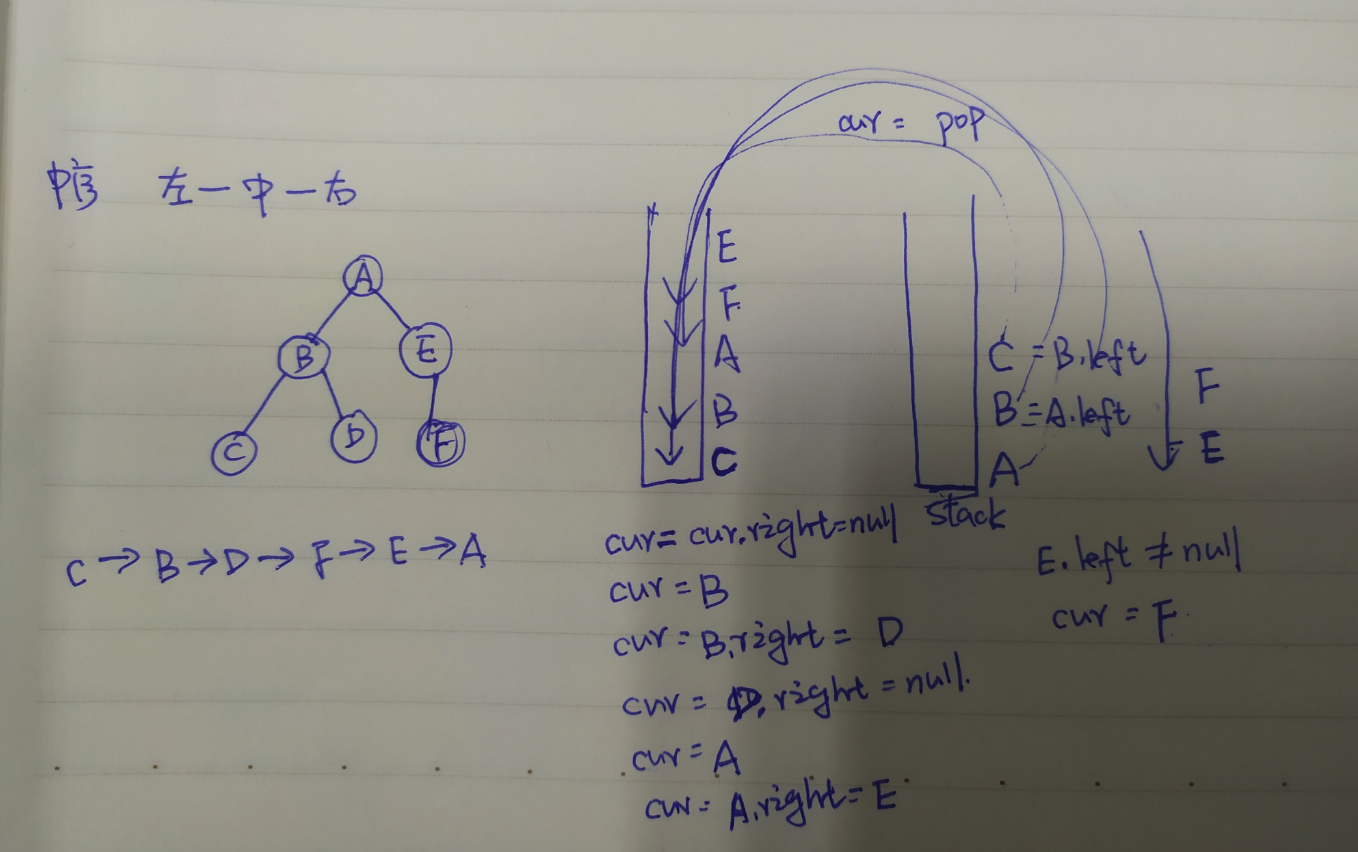 中序 左一中一右
A
B E
C D F
C → B → D → F → E → A
cur = pop
E
F
A
B
C
C = B.left
B = A.left
A
stack
F
E
cur = cur.right = null
cur = B
cur = B.right = D
cur = D.right = null.
cur = A
cur = A.right = E
E.left ≠ null
cur = F